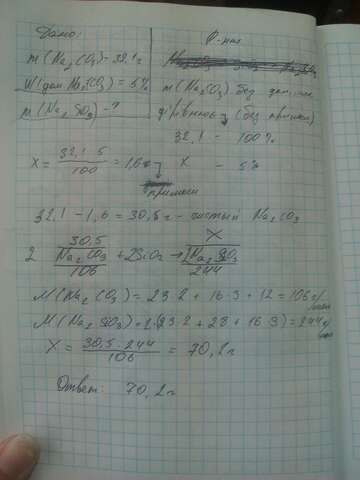 Дано:
m(Na2CO3)-32,1г
W(доп Na2CO3) = 5%
m(Na2SiO3) - ?
32,1 - 100%
X = 32,1·5 / 100 = 1,6г
X - 5%
примеси
32,1 - 1,6 = 30,5г - чистый Na2CO3
30,5 X
2 Na2CO3 + 2SiO2 → Na2SiO3
106 244
M(Na2CO3) = 23·2 + 16·3 + 12 = 106г/моль
M(Na2SiO3) = 2(23·2 + 28 + 16·3) = 244г/моль
X = 30,5·244 / 106 = 70,2г
Ответ: 70,2г